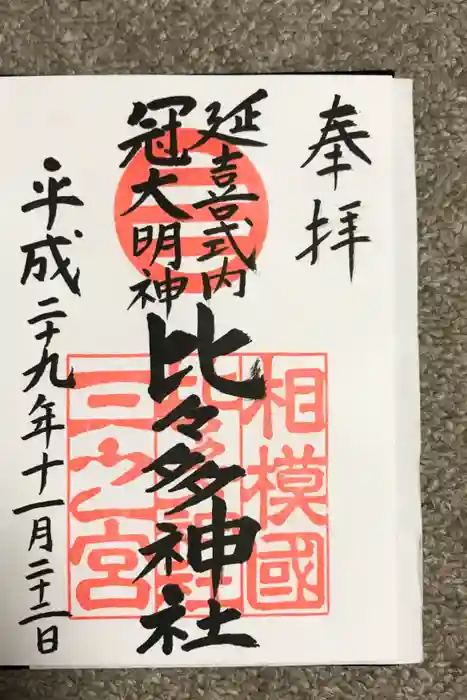 奉拝
延喜式内
冠大明神
比々多神社
平成二十九年十一月二十二日
相模國
三之宮